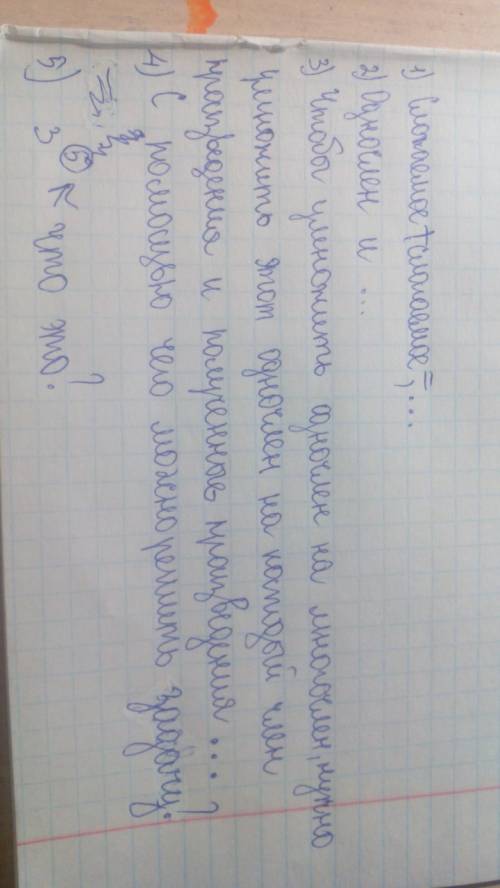 1) Слагаемое + слагаемое = ...
2) Одночлен и ...
3) Чтобы умножить одночлен на многочлен, нужно
умножить этот одночлен на каждый член
произведения и полученные произведения ...
4) С помощью чего можно решить задачу?
5) 3⁵ ← что это?